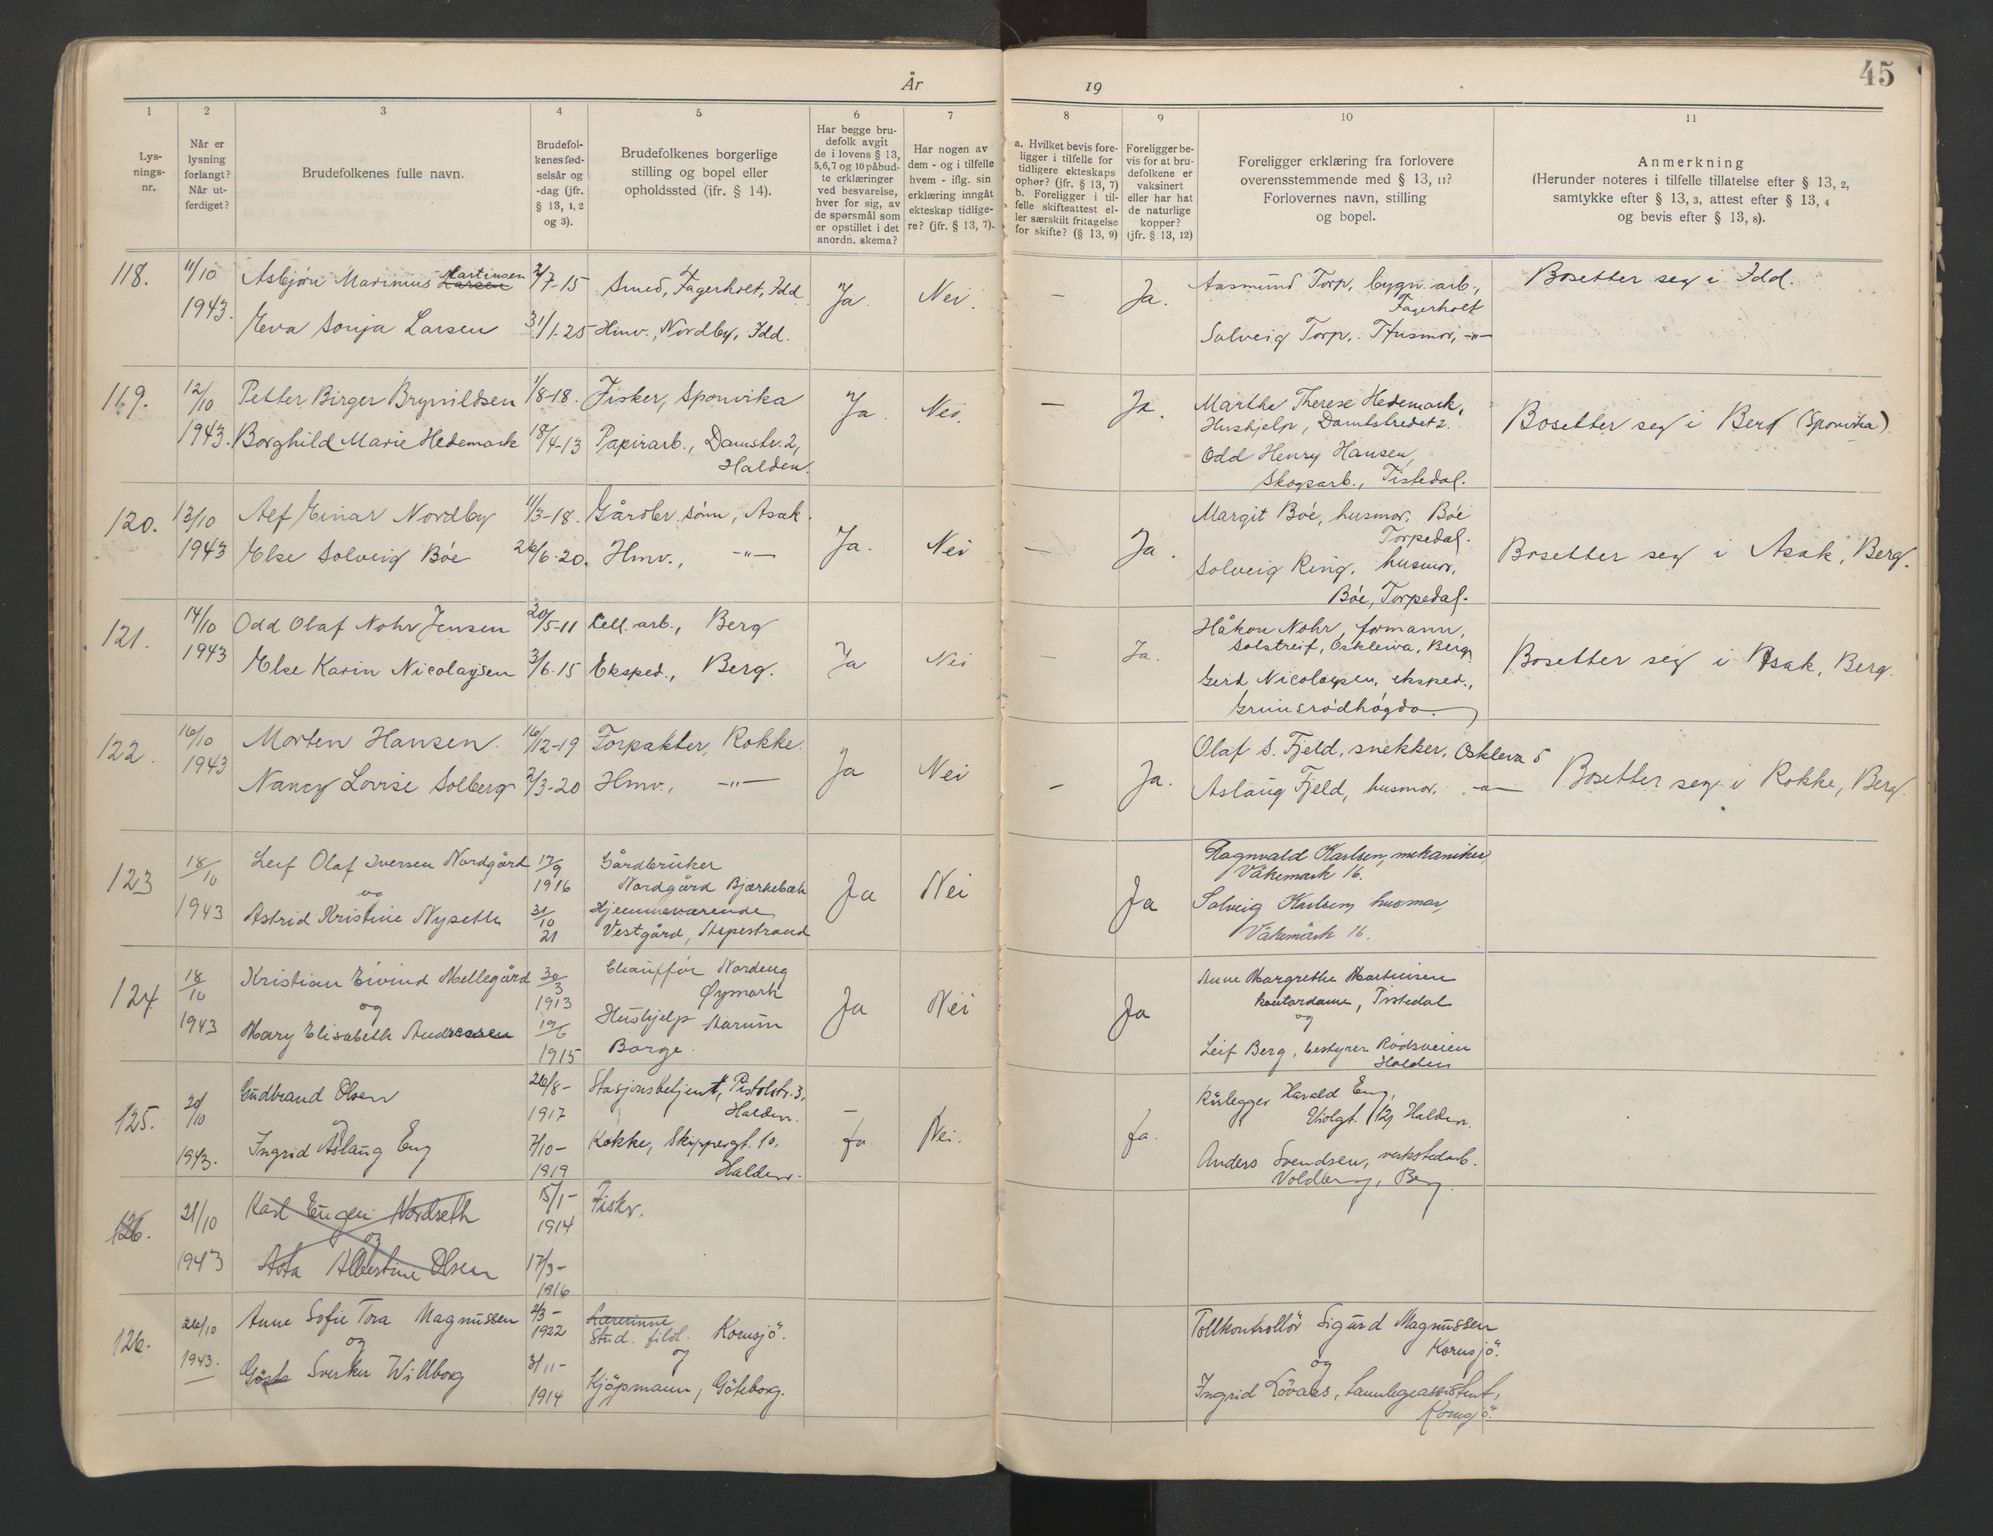 År 19
45
1
Lys-
nings-
nr.
2
Når er
lysning
forlangt?
Når ut-
ferdiget?
3
Brudefolkenes fulle navn.
4
Brudefol-
kenes fød-
selsår og
-dag (jfr.
§ 13, 1, 2
og 3).
5
Brudefolkenes borgerlige
stilling og bopel eller
opholdssted (ifr. § 14).
6
Har begge bru-
defolk avgit
de i lovens § 13,
5,6,7 og 10 påbud-
te erklæringer
ved besvarelse,
hver for sig, av
de spørsmål som
er opstillet i det
anordn. skema?
7
Har nogen av
dem - og i tilfelle
hvem - iflg. sin
erklæring inngått
ekteskap tidlige-
re? (jfr. § 13, 7).
8
a. Hvilket bevis fore-
ligger i tilfelle for
tidligere ekteskaps
ophør? (jfr. § 13, 7)
b. Foreligger i til-
felle skifteattest el-
ler særskilt fritagelse
for skifte? (§ 13, 9)
9
Foreligger be-
vis for at bru-
defolkene er
vaksinert
eller har hat
de naturlige
kopper?
(jfr. § 13, 12)
10
Foreligger erklæring fra forlovere
overensstemmende med § 13, 11?
Forlovernes navn, stilling
og bopel.
11
Anmerkning
(Herunder noteres i tilfelle tillatelse efter § 13, 2,
samtykke efter § 13, 3, attest efter § 13, 4
og bevis efter § 13, 8).
118. 11/10 Asbjørn Marinius Larsen Martinsen 2/7-15 Smed, Fagerholt, Idd Ja. Nei. – Ja. Aasmund Torp, bygn. arb., Bosetter seg i Idd.
Fagerholt
1943. Eva Sonja Larsen 31/1-25 Hmv., Nordby, Idd. Solveig Torp, Husmor, -"-
119. 12/10 Petter Birger Brynildsen 1/8-18. Fisker, Sponvika Ja. Nei. – Ja. Marthe Therese Hedemark,
Hushjelp, Damstredet 2. Bosetter seg i Berg (Sponvika)
1943. Borghild Marie Hedemark 18/4-13 Papirarb., Damstr. 2,
Halden. Odd Henry Hansen,
Skogsarb., Tistedal.
120. 13/10 Alf Einar Nordby 11/3-18. Gårdbr. sønn, Asak. Ja. Nei – Ja. Margit Bøe, husmor, Bøe
Torpedal.
1943 Else Solveig Bøe 26/6-20. Hmv., -"- Solveig Ring, husmor, Bosetter seg i Asak, Berg.
Bøe, Torpedal.
121. 14/10 Odd Olaf Nohr Jensen 20/5-11 Cell. arb., Berg Ja Nei – Ja. Håkon Nohr, formann,
Solstreif, Oskleiva, Berg.
1943 Else Karin Nicolaysen 3/6-15 Eksped., Berg. Gerd Nicolaysen, eksped., Bosetter seg i Asak, Berg.
Grimsrødhøgda.
122. 16/10 Morten Hansen. 16/12-19 Forpakter, Rokke. Ja Nei – Ja. Olaf S. Fjeld, snekker, Oskleva 5
1943 Nancy Lovise Solberg 2/3-20 Hmv., -"- Aslaug Fjeld, husmor, -"- Bosetter seg i Rokke, Berg.
123 18/10 Leif Olaf Iversen Nordgård 17/9 Gårdbruker Ragnvald Karlsen, mekaniker,
og 1916 Nordgård Bjærkebæk Ja Nei Ja Våkemark 16.
1943 Astrid Kristine Nyseth 31/10 Hjemmeværende Solveig Karlsen, husmor,
21 Vestgård, Aspestrand Våkemark 16.
124 18/10 Kristian Eivind Mellegård 30/3 Chauffør Nordeng Anne Margrethe Martinsen
og 1913 Øymark Ja Nei Ja kontordame, Tistedal
og
1943 Mary Elisabeth Andreasen 19/6 Hushjelp Aarum Leif Berg, bestyrer Rødsveien
1915 Borge. Halden
125. 20/10 Gudbrand Olsen 26/8- Stasjonsbetjent, Pistolstr. 3, – Rørlegger Harald Eng,
og 1917 Halden. Violgt. 12, Halden.
1943. Ingrid Aslaug Eng 7/10- Kokke, Skippergt. 10. Ja Nei. Ja. Anders Svendsen, verkstedarb.
1919 Halden. Voldberg, Berg.
126. 21/10 Karl Eugen Nordseth 15/1- Fisker.
og 1914
1943 Asta Albertine Olsen 17/3-
1916
126. 26/10 Anne Sofie Tora Magnussen 2/3- Lærerinne Tollkontrollör Sigurd Magnussen
og 1922 Stud. filol. Kornsjö. Kornsjö.
og og
1943. Gösta Sverker Willborg 3/11- Kjøpmann, Göteborg. Ingrid Lövaas, tannlegeassistent,
1914 Kornsjö.